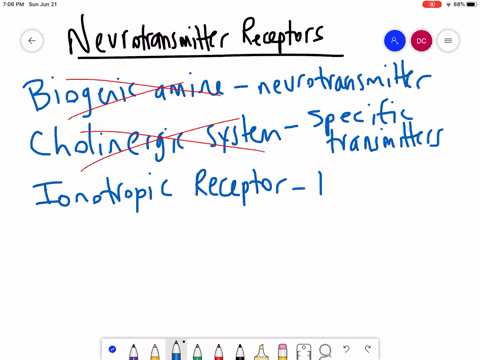 7:06 PM Sun Jun 21
88%
DC
Neurotransmitter Receptors
Biogenic amine - neurotransmitter
Cholinergic system - specific
transmitters
Ionotropic Receptor - I